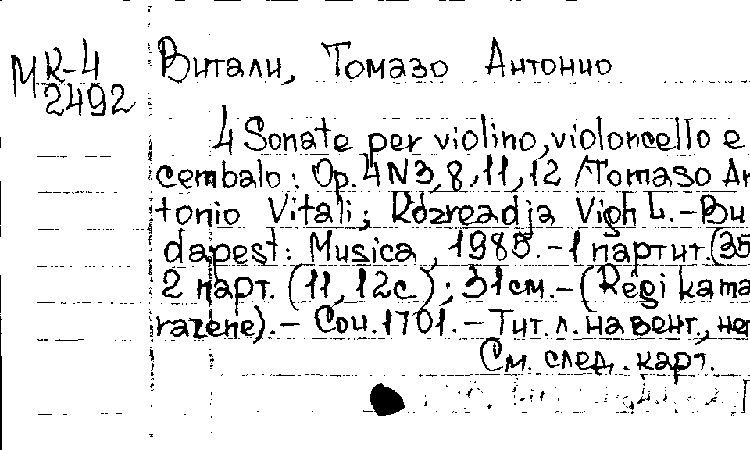 MR-4
2492
Витали, Томазо Антонио
4 Sonate per violino, violoncello e
cembalo: Op. 4 N3, 8, 11, 12 / Tomaso An
tonio Vitali; Közreadja Vigh L. - Bu
dapest: Musica, 1985. - 1 партит. (35
2 парт. (11, 12с); 31см. - (Régi kama
razene). - Соч. 1701. - Тит. л. на венг., нем
См. след. карт.